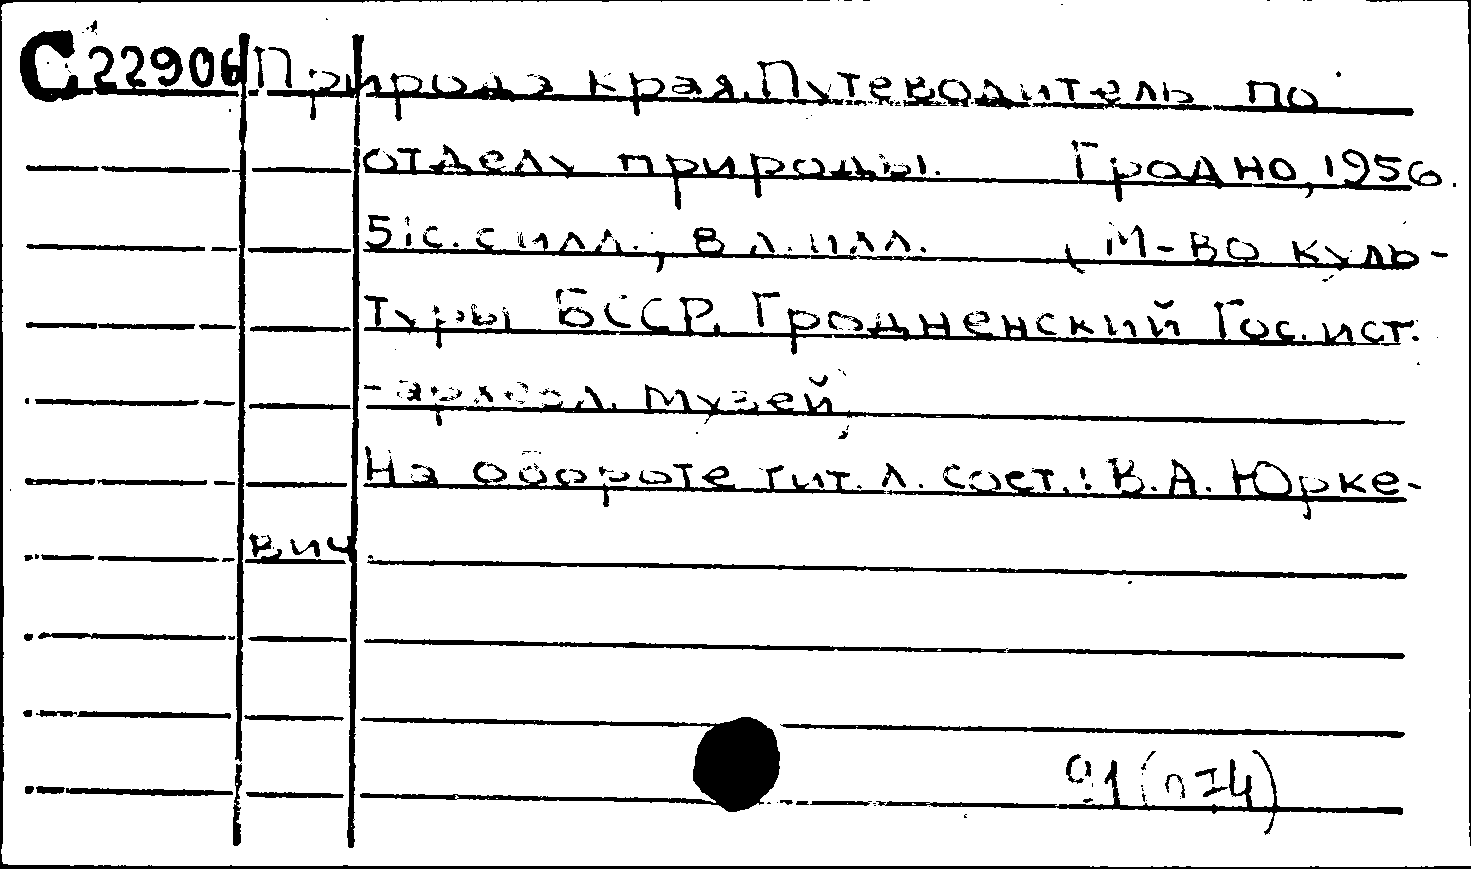 С22906 Природа края. Путеводитель по
отделу природы. Гродно, 1956.
51с. с илл.; 8 л. илл. (М-во куль-
туры БССР. Гродненский Гос. ист.
-археол. музей)
На обороте тит. л. сост.: В.А. Юрке-
вич.